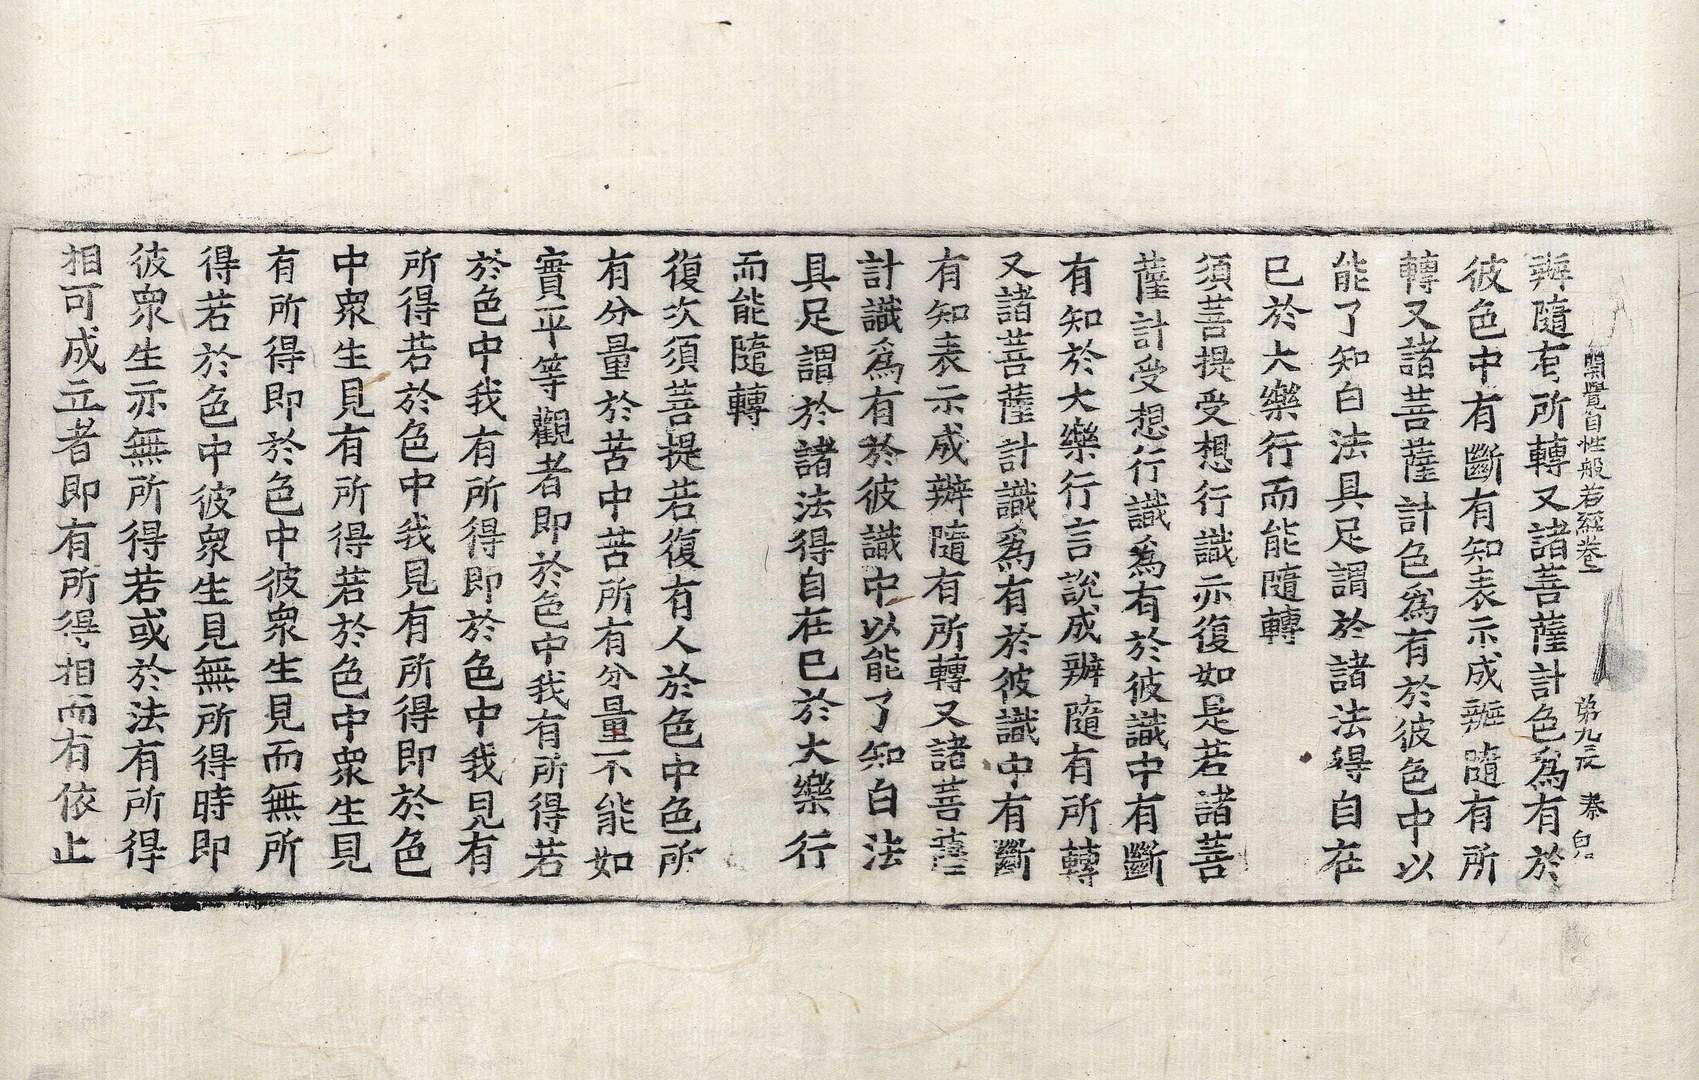 開覺自性般若經卷二 第九張 秦皃
辦隨有所轉又諸菩薩計色爲有於
彼色中有斷有知表示成辦隨有所
轉又諸菩薩計色爲有於彼色中以
能了知白法具足謂於諸法得自在
已於大樂行而能隨轉
須菩提受想行識亦復如是若諸菩
薩計受想行識爲有於彼識中有斷
有知於大樂行言說成辦隨有所轉
又諸菩薩計識爲有於彼識中有斷
有知表示成辦隨有所轉又諸菩薩
計識爲有於彼識中以能了知白法
具足謂於諸法得自在已於大樂行
而能隨轉
復次須菩提若復有人於色中色所
有分量於苦中苦所有分量不能如
實平等觀者即於色中我有所得若
於色中我有所得即於色中我見有
所得若於色中我見有所得即於色
中衆生見有所得若於色中衆生見
有所得即於色中彼衆生見而無所
得若於色中彼衆生見無所得時即
彼衆生亦無所得若或於法有所得
相可成立者即有所得相而有依止